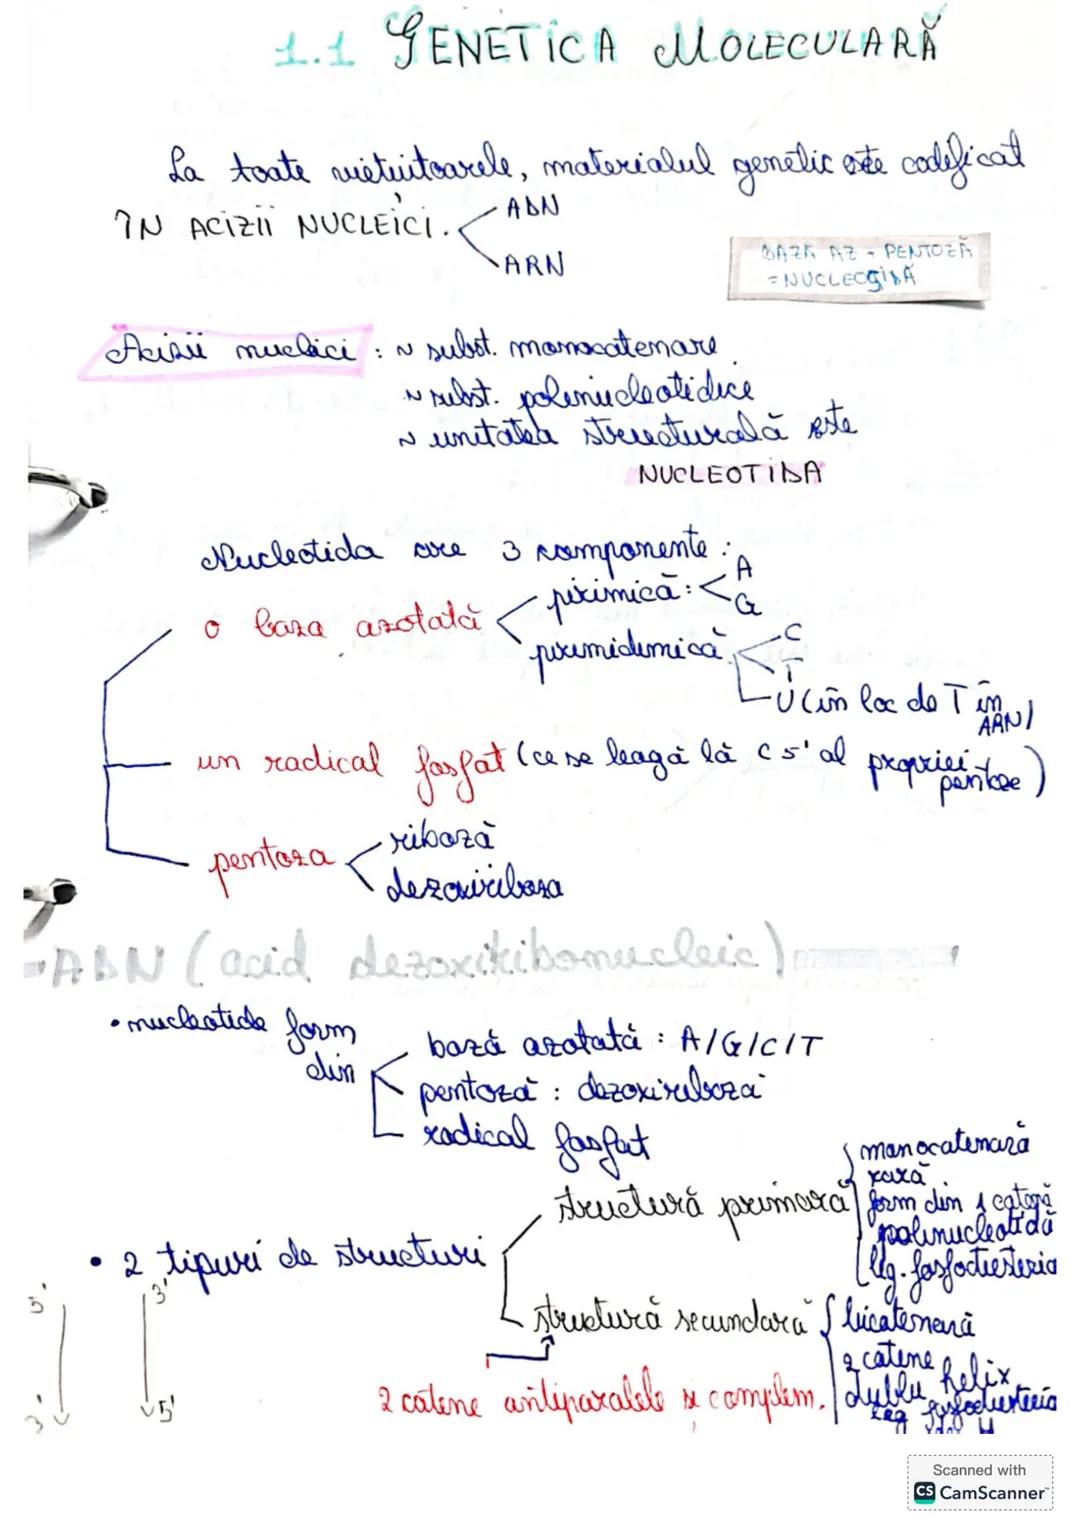 1.1 GENETICA MOLECULARĂ
La toate viețuitoarele, materialul genetic este codificat
ÎN ACIZII NUCLEICI.
ADN
ARN
BAZĂ AZ + PENTOZĂ
= NUCLEOZIDĂ
Acizii nucleici : ~ subst. monocatenare
~ subst. polinucleotidice
~ unitatea structurală este
NUCLEOTIDA
Nucleotida are 3 componente :
o baza azotată
pirimică: A
G
pirimidinică C
T
U (în loc de T în ARN)
un radical fosfat (ce se leagă la C 5' al propriei pentoze)
pentoza
riboză
dezoxiriboza
ADN (acid dezoxiribonucleic)
• nucleotide form din
bază azotată : A/G/C/T
pentoză : dezoxiriboză
radical fosfat
• 2 tipuri de structuri
structură primară
monocatenară
rară
form din 1 catenă
polinucleotidă
leg. fosfodiesteric
structură secundară
bicatenară
2 catene
dublu helix
leg fosfodiesteric
2 catene antiparalele si complem.
5' 3'
3' 5'
Scanned with
CS CamScanner